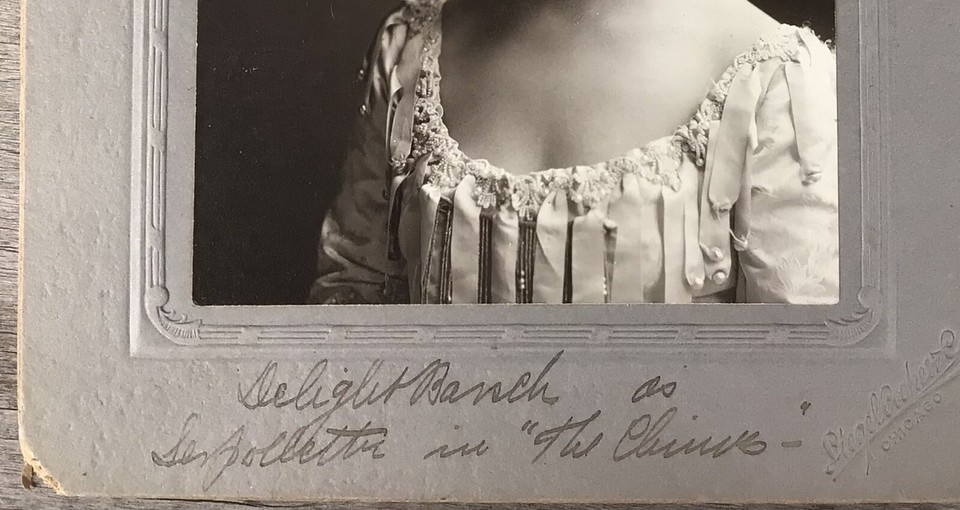 Delight Barsch as
Serpollette in "The Chimes -"
Siegel Cooper Co
CHICAGO